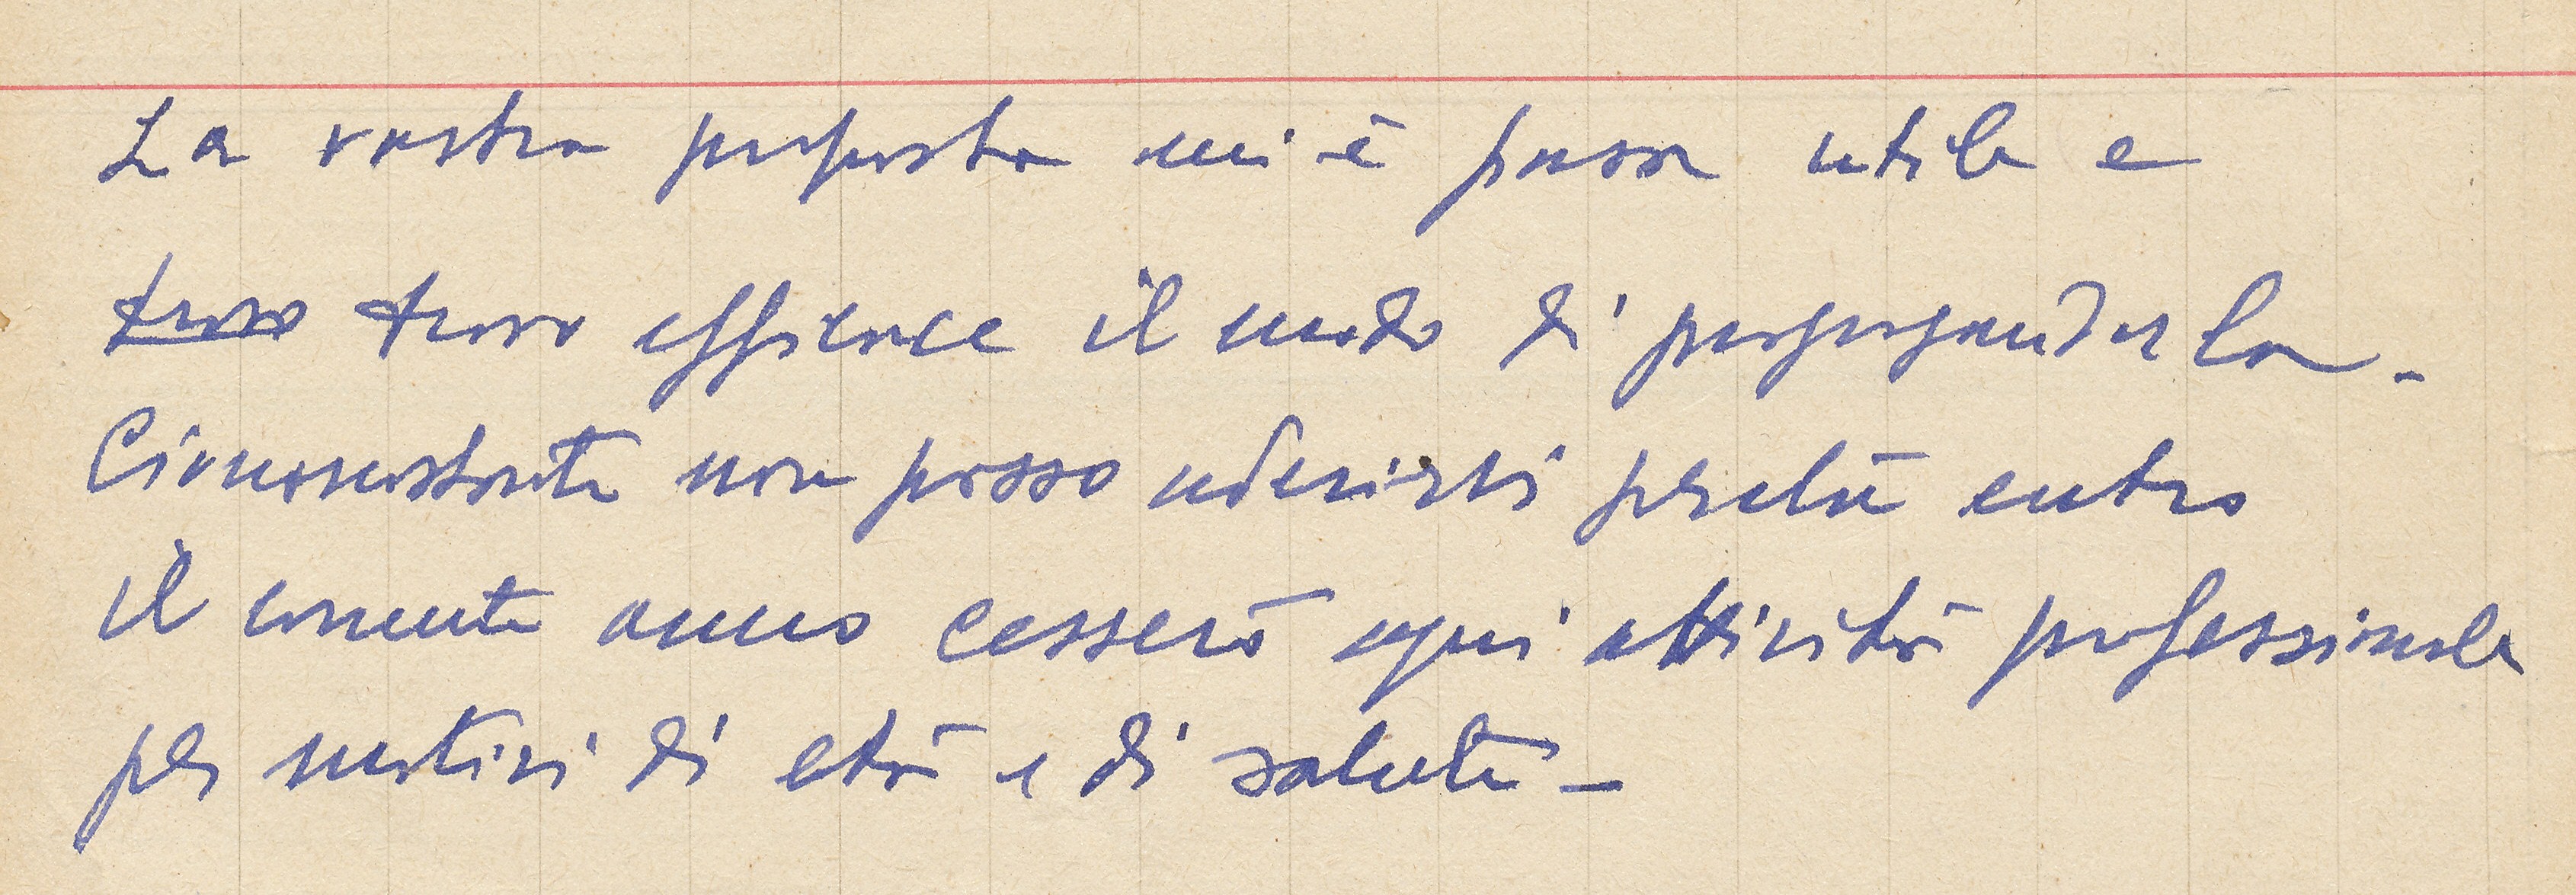 La vostra proposta mi è parsa utile e
trovo trovo efficace il modo di propagandarla.
Ciononostante non posso aderirvi perché entro
il corrente anno cesserò ogni attività professionale
per motivi di età e di salute –